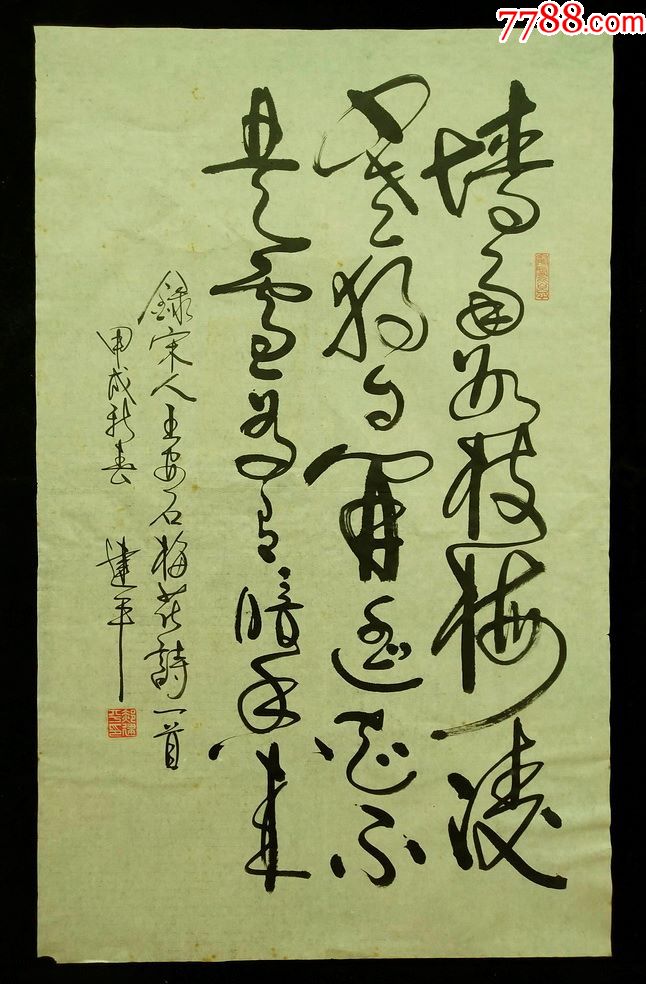 7788.com
墻角數枝梅凌
寒獨自開遥知不
是雪為有暗香来
録宋人王安石梅花詩一首
甲戌新春 建平